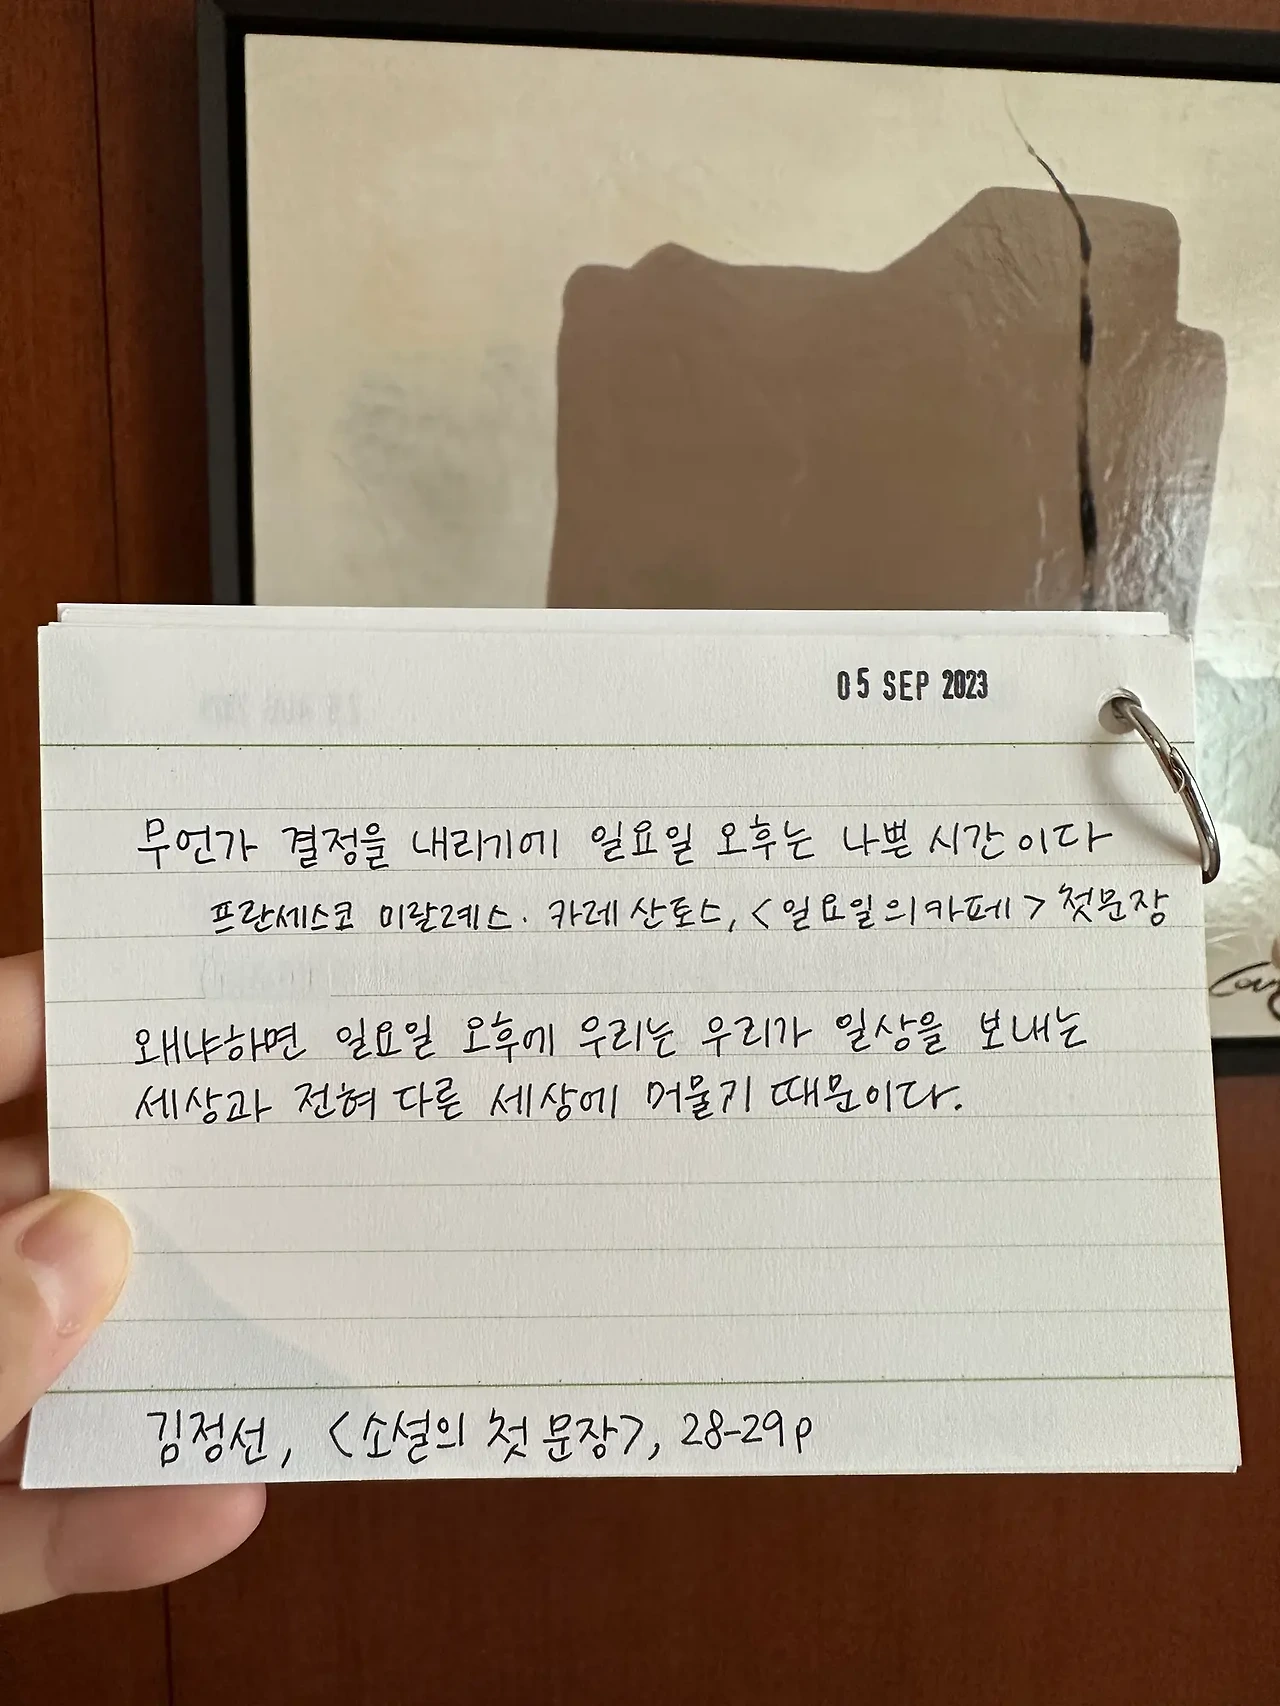 05 SEP 2023
무언가 결정을 내리기에 일요일 오후는 나쁜 시간이다
프란세스코 미랄레스· 카레 산토스, <일요일의 카페> 첫문장
왜냐하면 일요일 오후에 우리는 우리가 일상을 보내는
세상과 전혀 다른 세상에 머물기 때문이다.
김정선, <소설의 첫 문장>, 28-29p